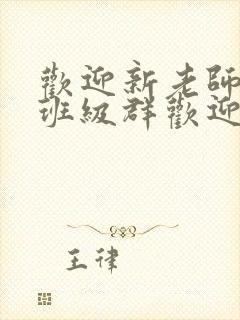 歡迎新老師
班級群歡迎
王律